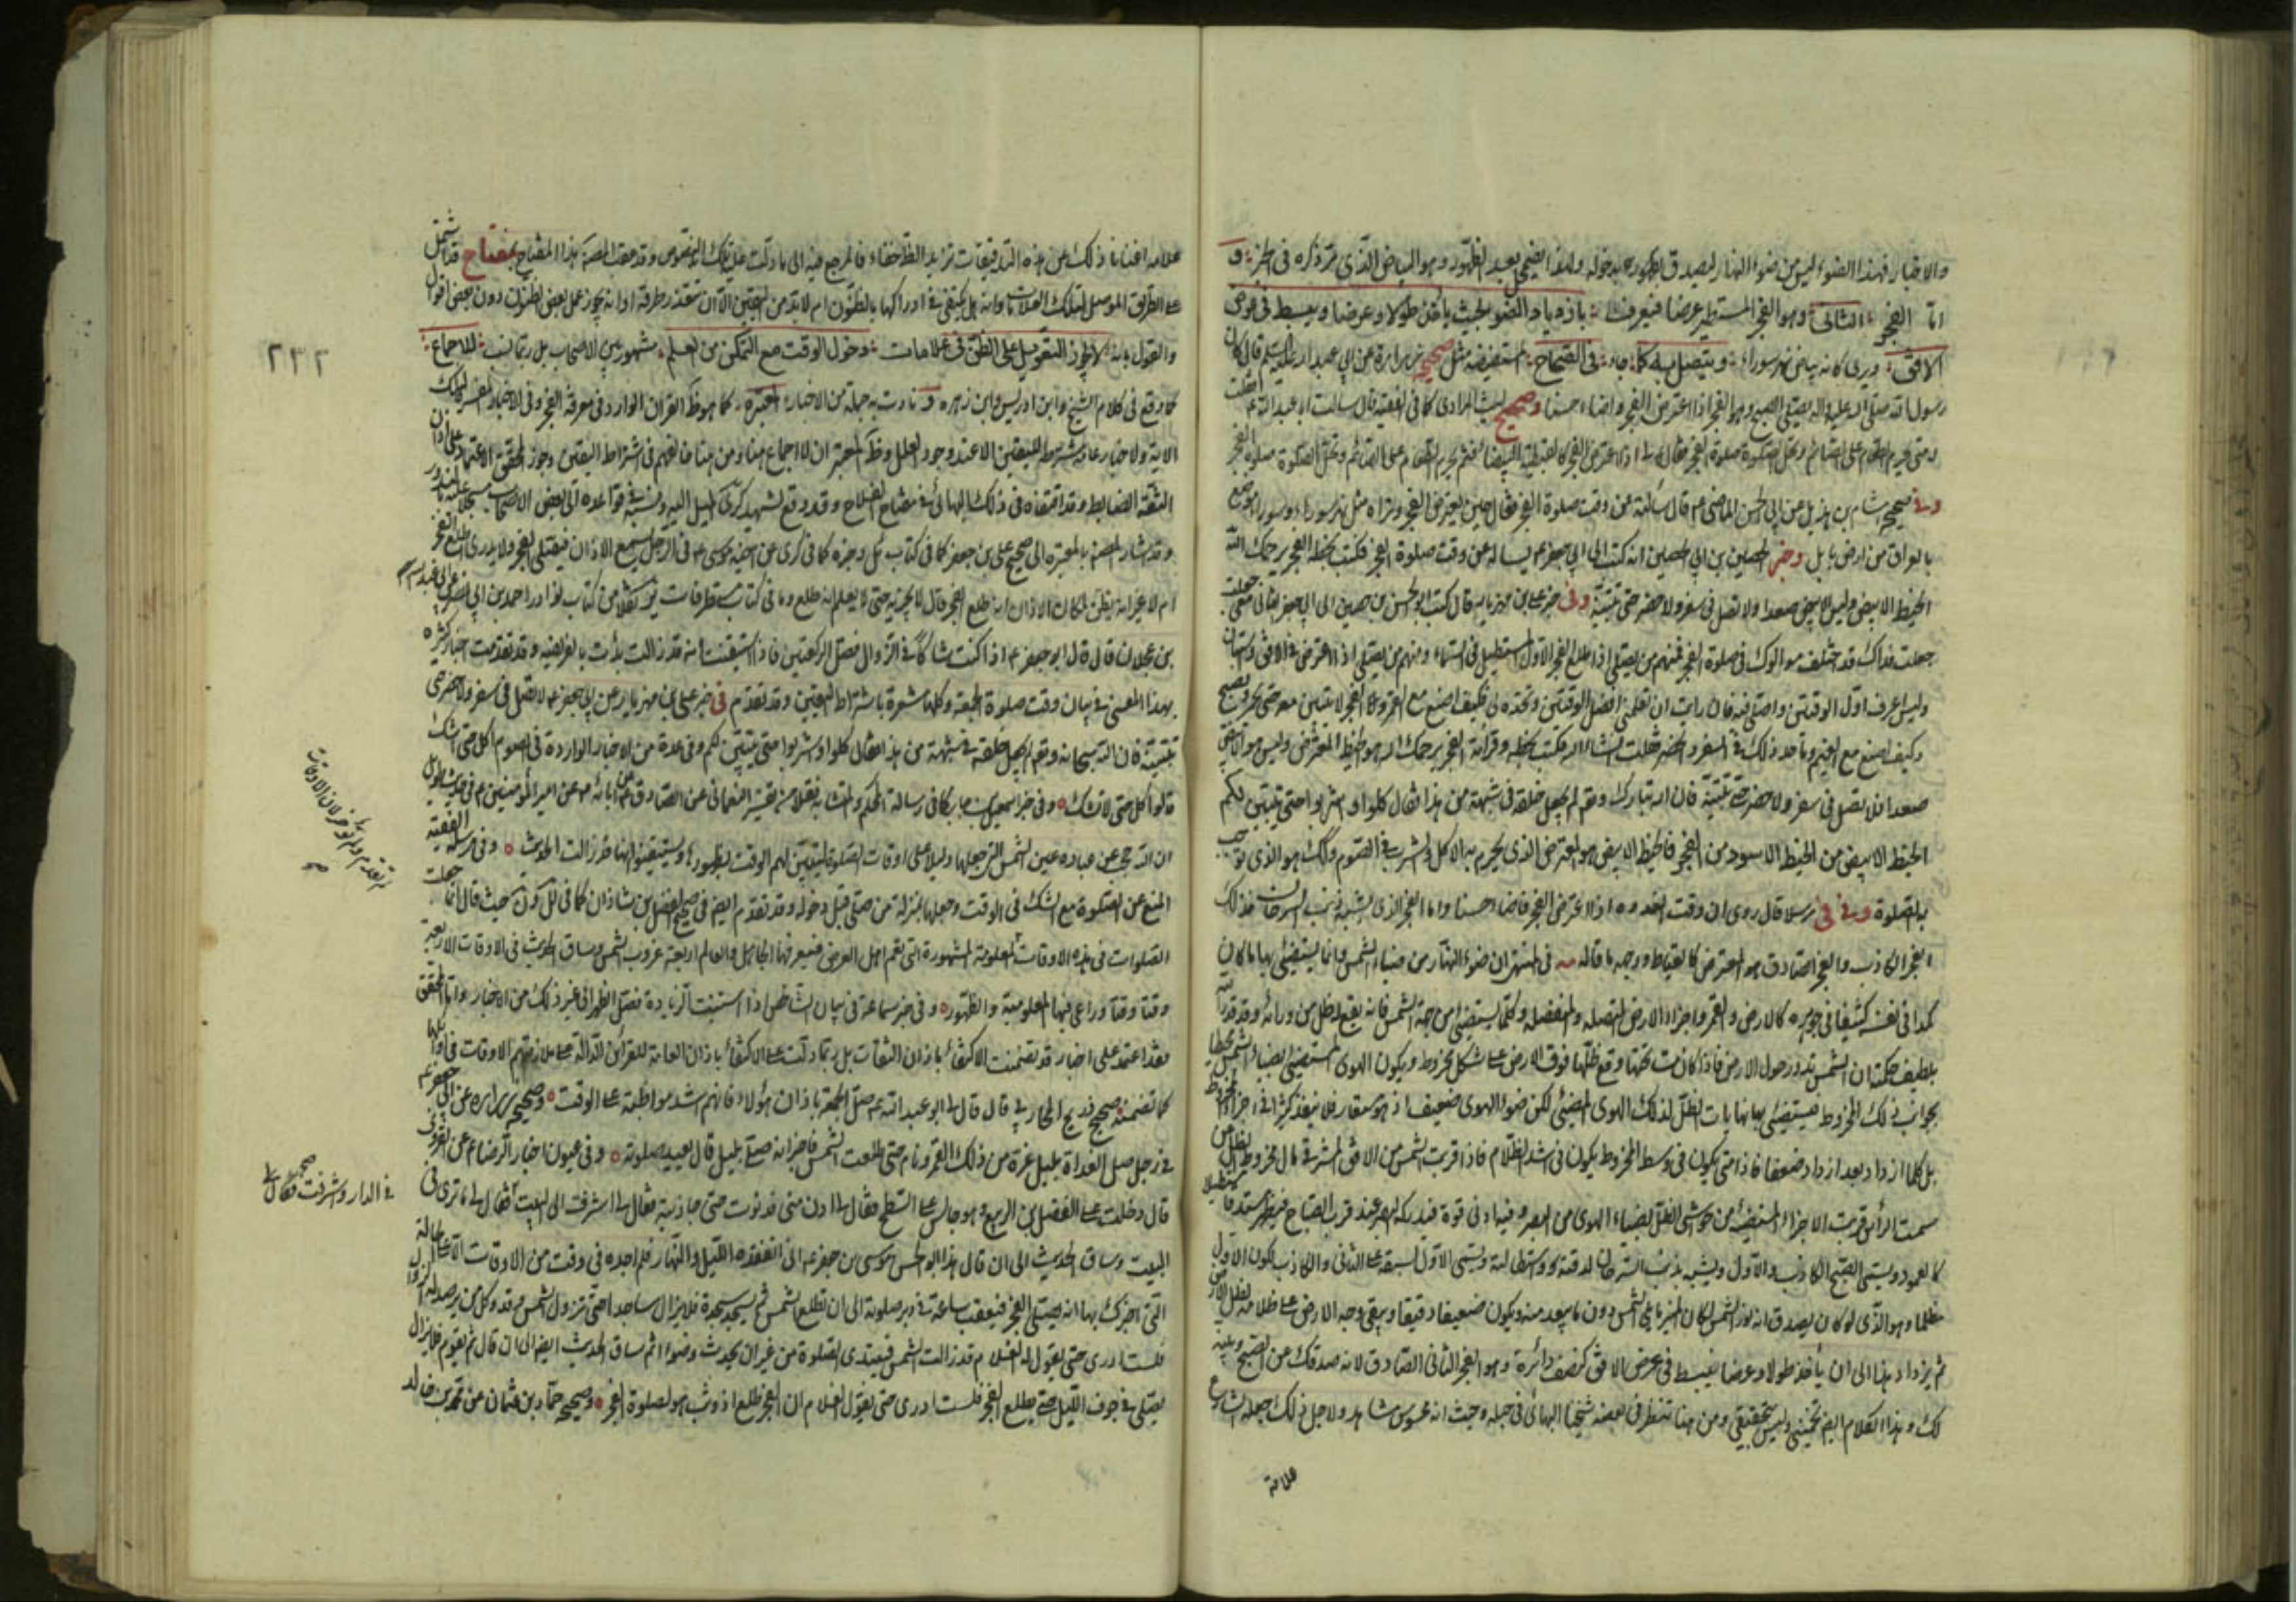 والاخبار فهذا الضوء ليس من ضوء النهار ليصدق بظهوره بدخوله ولهذا يضمحل بعد الظهور وهو البياض الذى مر ذكره فى الخبر و
اما الفجر الثانى وهو الفجر المستطير عرضا فيعرف بازدياد الضوء بحيث يأخذ طولا وعرضا وينبسط فى عرض
الافق ويرى كانه بياض نهر سوراء ويتصل به كما جاء فى الصحاح المستفيضة مثل صحيح زرارة عن ابى عبد الله عليه السلم قال كان
رسول الله صلى الله عليه واله يصلى الصبح وهو الفجر اذا اعترض الفجر واضاء حسنا وصحيح ليث المرادى كما فى الفقيه قال سالت ابا عبد الله ع فقلت
متى يحرم الطعام على الصائم وتحل الصلوة صلوة الفجر فقال لى اذا اعترض الفجر كالقبطية البيضاء فثم يحرم الطعام على الصائم وتحل الصلوة صلوة الفجر
وفى صحيح هشام بن هذيل عن ابى الحسن الماضى ع قال سألته عن وقت صلوة الفجر فقال حين يعترض الفجر وتراه مثل نهر سوراء وسوراء موضع
بالعراق من ارض بابل وخبر الحصين بن ابى الحصين انه كتب الى ابى جعفر ع يساله عن وقت صلوة الفجر فكتب بخطه الفجر يرحمك الله
الخيط الابيض وليس الابيض صعدا ولا تصل فى سفر ولا حضر حتى تتبينه وفى خبر على بن مهزيار قال كتب ابو الحسن بن حصين الى ابى جعفر الثانى معى
جعلت فداك قد اختلف موالوك فى صلوة الفجر فمنهم من يصلى اذا طلع الفجر الاول المستطيل فى السماء ومنهم من يصلى اذا اعترض فى الافق واستبان
ولست اعرف اول الوقتين واصلى فيه فان رايت ان تعلمنى افضل الوقتين وتحده لى فكيف اصنع مع القمر والفجر لا يتبين معه حتى يحمر ويصبح
وكيف اصنع مع الغيم وما حد ذلك فى السفر والحضر فعلت انشاء الله فكتب بخطه وقرأته الفجر يرحمك الله هو الخيط المعترض وليس هو الابيض
صعدا فلا تصل فى سفر ولا حضر حتى تتبينه فان الله تبارك وتعالى لم يجعل خلقه فى شبهة من هذا فقال كلوا واشربوا حتى يتبين لكم
الخيط الابيض من الخيط الاسود من الفجر فالخيط الابيض هو المعترض الذى يحرم به الاكل والشرب فى الصوم وكذلك هو الذى توجب
به الصلوة وفى فى مرسلا قال روى ان وقت الغدوة اذا اعترض الفجر فاضاء حسنا واما الفجر الذى يشبه ذنب السرحان فذلك
الفجر الكاذب والفجر الصادق هو المعترض كالقباطى ووجه ما قاله مه فى المنتهى ان ضوء النهار من ضياء الشمس وانما يستضيئ بها ما كان
كمدا فى نفسه كثيفا فى جوهره كالارض والقمر واجزاء الارض المتصلة والمنفصلة وكلما يستضيئ من جهة الشمس فانه يقع له ظل من ورائه وقد قدر الله
بلطيف حكمته ان الشمس تدور حول الارض فاذا كانت تحتها وقع ظلها فوق الارض على شكل مخروط ويكون الهوى المستضيئ بضياء الشمس محيطا
بجوانب ذلك المخروط فيستضيئ بها نهايات الظل لذلك الهوى المضيئ لكن ضوء الهوى ضعيف اذ هو مستعار فلا ينفذ كثيرا فى اجزاء المخروط
بل كلما ازداد بعدا ازداد ضعفا فاذا متى يكون فى وسط المخروط يكون فى اشد الظلام فاذا قربت الشمس من الافق المشرقى مال مخروط الظل عن
سمت الرأس وقربت الاجزاء المستضيئة من حواشى الظل بضياء الهوى من البصر وفيه ادنى قوة فيدركه البصر عند قرب الصباح فيظهر مستدقا مستطيلا
كالعمود ويسمى الصبح الكاذب والاول ويشبه بذنب السرحان لدقته واستطالته ويسمى الاول لسبقه على الثانى والكاذب لكون الافق
مظلما وهو الذى لو كان يصدق انه نور الشمس لكان المنير ما يلى الشمس دون ما يبعد منه ويكون ضعيفا دقيقا ويبقى وجه الارض على ظلامه لظل الارض
ثم يزداد هذا الى ان يأخذ طولا وعرضا فينبسط فى عرض الافق كنصف دائرة وهو الفجر الثانى الصادق لانه صدقك عن الصبح وبينه
لك وهذا الكلام ايضا تخمينى وليس بتحقيقى ومن هنا تنظر فى بعضه شيخنا البهائى فى حبله وحيث انه محسوس مشاهد ولاجل ذلك جعله الشارع
علامة
علامة اغنانا ذلك عن هذه التدقيقات تزايد الظل خفاء فالمرجع فيه الى ما دلت عليه تلك النصوص وقد عقب المصنف هذا المفتاح بمفتاح قد اشتمل
على الطريق الموصل لتلك العلامات وانه هل يكتفى فى ادراكها بالظنون ام لا بد من اليقين الا ان يتعذر طرقه او انه يجوز عمل بعض الظنون دون بعض اقوال
والقول بانه لا يجوز التعويل على الظن فى علامات دخول الوقت مع التمكن من العلم مشهور بين الاصحاب بل ربما نسب للاجماع
كما وقع فى كلام الشيخ وابن ادريس وابن زهره ونادت به جملة من الاخبار المعتبرة كما هو ظ القران الوارد فى معرفة الفجر وفى الاخبار المفسرة لتلك
الاية ولاخبار عامة مشترط لليقين الا عند وجود العلل وظ المعتبر ان لا اجماع هنا ومن هنا خالفهم فى اشتراط اليقين وجوز المحقق الاعتماد على اذان
الثقة الضابط وقد اقتفاه فى ذلك البهائى فى مفتاح الفلاح وقد وقع للشهيد كرى الميل اليه ونسبه فى قواعده الى بعض الاصحاب
وقد اشار المصنف بالمعتبرة الى صحيح على بن جعفر كما فى كتاب ئل وغيره كما فى كرى عن اخيه موسى ع فى الرجل يسمع الاذان فيصلى الفجر ولا يدرى اطلع الفجر
ام لا غير انه يظن لمكان الاذان انه طلع الفجر قال لا يجزيه حتى يعلم انه طلع وما فى كتاب مستطرفات ئر نقلا من كتاب نوادر احمد بن ابى نصر عن عبد الله
بن عجلان قال قال ابو جعفر ع اذا كنت شاكا فى الزوال فصل الركعتين فاذا استيقنت انه قد زالت بدأت بالفريضه وقد تقدمت اخبار كثيره
بهذا المعنى فى بيان وقت صلوة الجمعة وكلها مشعرة باشتراط اليقين وقد تقدم فى خبر على بن مهزيار عن ابى جعفر ع لا تصل فى سفر ولا حضر حتى
تتبينه فان الله سبحانه وتعالى لم يجعل خلقه فى شبهة من هذا فقال كلوا واشربوا حتى يتبين لكم وفى عدة من الاخبار الواردة فى الصوم كل حتى تشك
قالوا كل حتى لا تشك وفى خبر اسمعيل بن جابر كما فى رسالة المحكم والمتشابه نقلا من تفسير النعمانى عن الصادق ع عن ابائه ع عن امير المؤمنين ع فى حديث طويل
ان الله حجب عن عباده عين الشمس التى جعلها دليلا على اوقات الصلوة ليتبين لهم الوقت بظهورها ويستيقنوا انها قد زالت الحديث وفى مرسلة الفقيه
المنع عن الصلوة مع الشك فى الوقت وجعلها بمنزلة من صلى قبل دخوله وقد تقدم ايضا فى صحيح الفضل بن شاذان كما فى العلل والعيون حيث قال انما جعلت
الصلوات فى هذه الاوقات المعلومة المشهورة التى تعم اهل الارض فيعرفها الجاهل والعالم اربعة غروب الشمس وساق الحديث فى الاوقات الاربعة
وقتا وقتا وراعى فيها المعلومية والظهور وفى خبر سماعة فى بيان الشاخص اذا استبنت الزيادة فصل الظهر الى غير ذلك من الاخبار واما المحقق
فقد اعتمد على اخبار قد تضمنت الاكتفاء باذان الثقات بل ربما دلت على الاكتفاء باذان العامة للقرائن الدالة على ملازمتهم الاوقات فى اوائلها
كما تضمنه صحيح ذريح المحاربى قال قال لى ابو عبد الله ع صل الجمعة باذان هؤلاء فانهم اشد مواظبة على الوقت وصحيح زراره عن ابى جعفر ع
فى رجل صلى الغداة بليل غره من ذلك القمر ونام حتى طلعت الشمس فاخبر انه صلى بليل قال يعيد صلوته وفى عيون اخبار الرضا ع عن القروى
قال دخلت على الفضل بن الربيع وهو جالس على السطح فقال لى ادن منى فدنوت حتى حاذيته فقال لى اشرف الى البيت فقال لى ما ترى فى
البيت وساق الحديث الى ان قال هذا ابو الحسن موسى بن جعفر ع انى اتفقده الليل والنهار فلم اجده فى وقت من الاوقات الا على الحالة
التى اخبرك بها انه يصلى الفجر فيعقب ساعة فى دبر صلوته الى ان تطلع الشمس ثم يسجد سجدة فلا يزال ساجدا حتى تزول الشمس وقد وكل من يرصد له الزوال
فلست ادرى حتى يقول له الغلام قد زالت الشمس فيبتدى الصلوة من غير ان يحدث وضوءا ثم ساق الحديث ايضا الى ان قال ثم يقوم فلا يزال
يصلى فى جوف الليل حتى يطلع الفجر فلست ادرى متى يقول الغلام ان الفجر طلع اذ وثب هو لصلوة الفجر وصحيح حماد بن عثمان عن محمد بن خالد
٢٣٢
فى الدار فاشرفت فقال لى
صح